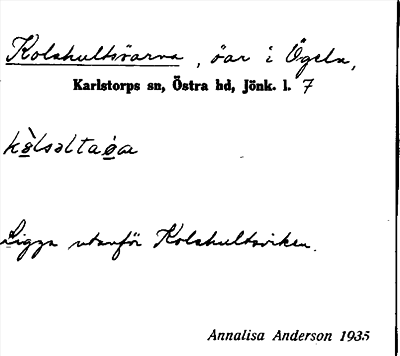 Kolshultsöarna, öar i Ögeln,
Karlstorps sn, Östra hd, Jönk. l. 7
Ligga utanför Kolshultsviken.
Annalisa Anderson 1935